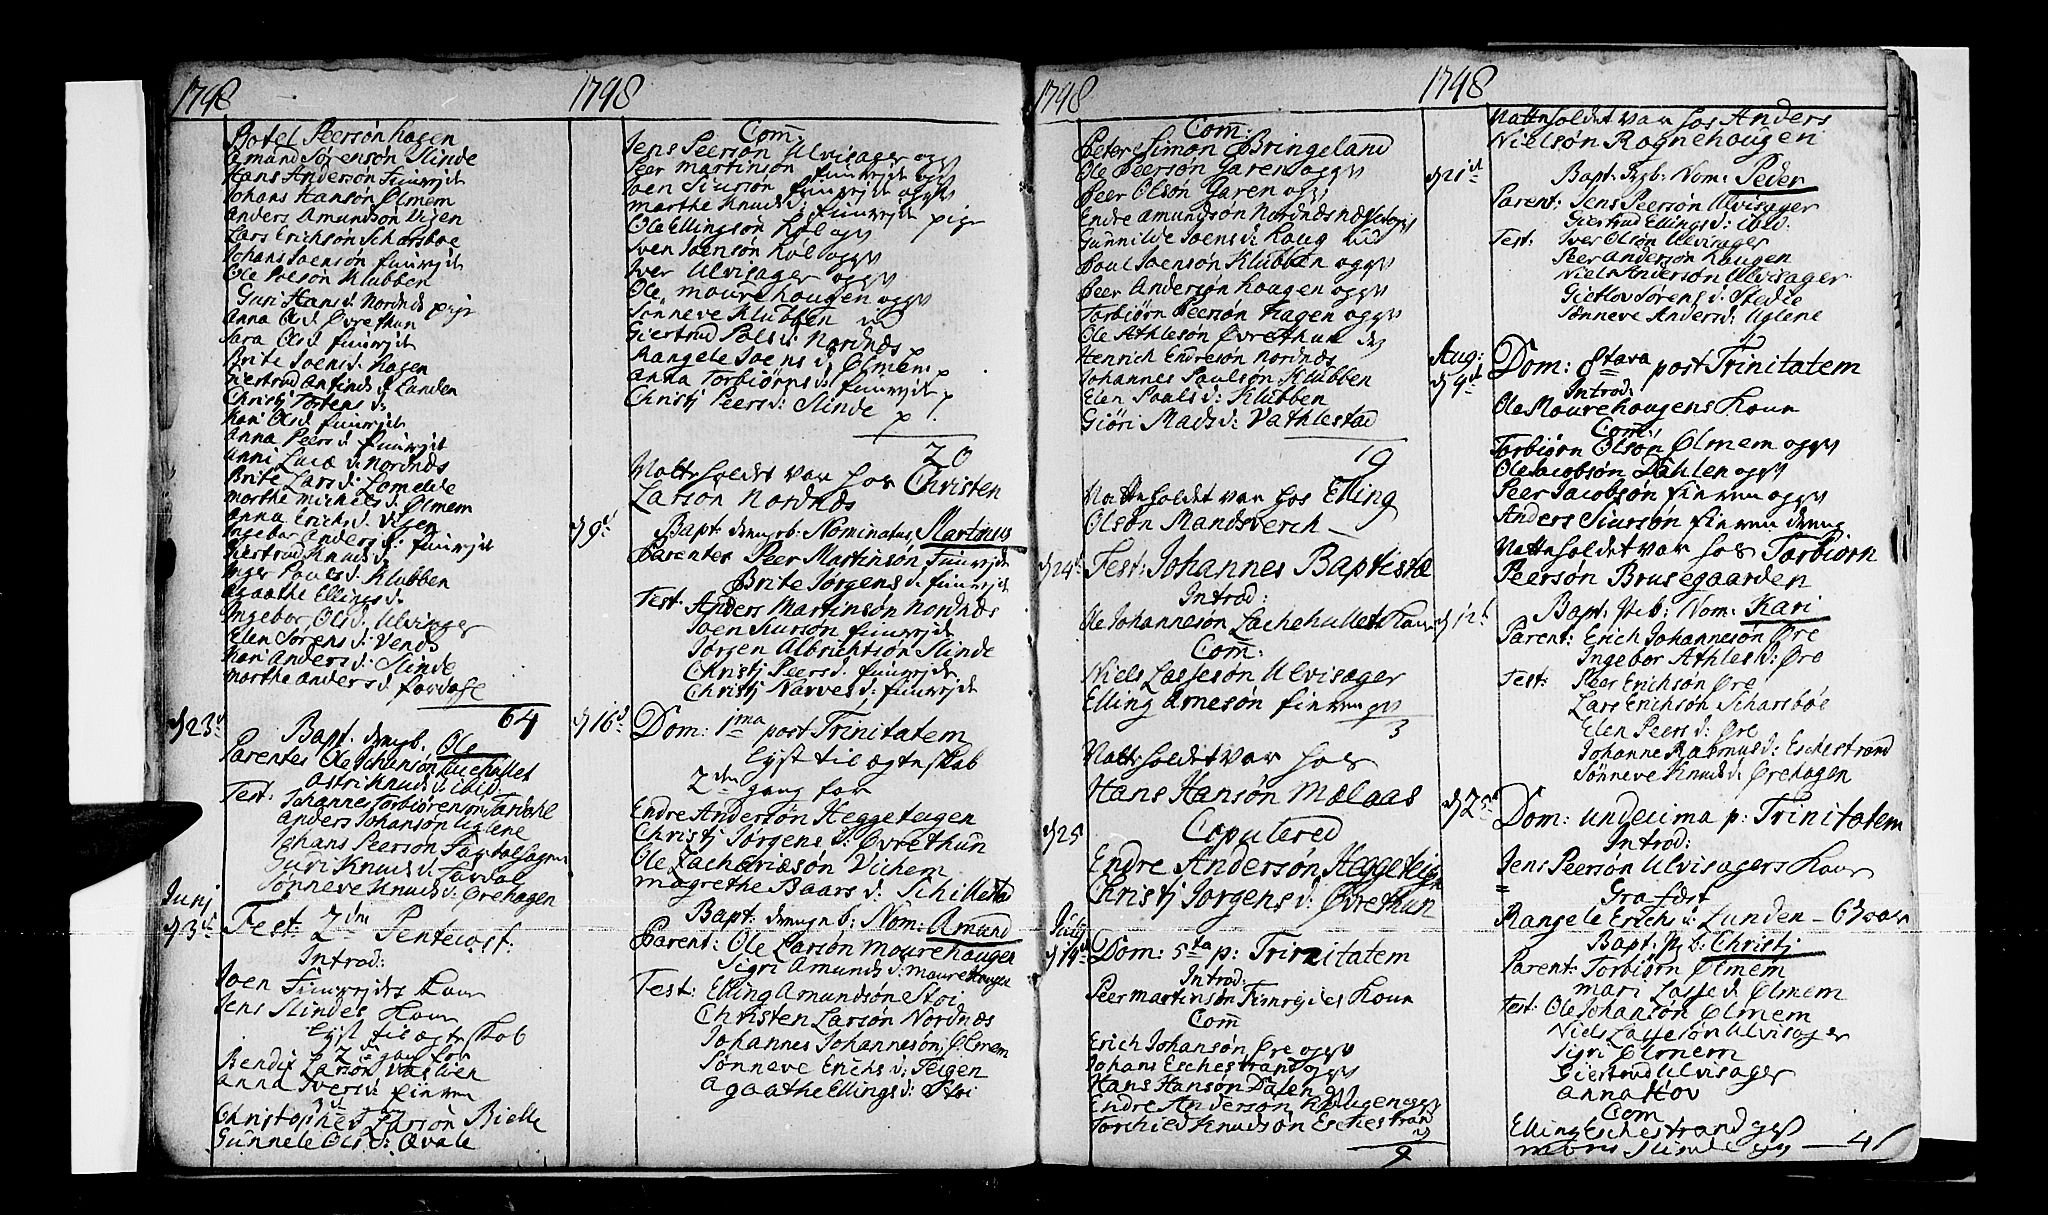 1748
Botel Peersön Hagen
Amund Sörensön Slinde
Hans Andersön Fimrejte
Johans Hansön Ølmem
Anders Amundsön Vigen
Lars Erichsön Scharsböe
Johans Joensön fimrejte
Ole Peersön Klubben
Guri Hans d: Nordnæs pige
Anna Ols d. Øvrethun
Sara Ols d fimrejte
Brite Joens d. Hagen
Giertrud Anfinds d: Lunden
Christj Tostens d:
Kari Ols d fimrejte
Anna Peers d fimrejte
Anni Lucæ d: Nordnæs
Brite Lars d: Lomelde
Marthe Michels d: Ølmem
Anna Erichs d. Vigen
Ingebor Anders d: fimrejte
Giertrud Knuds d:
Inger Pouls d: Klubben
Agaathe Ellings d:
Ingebor Ols d: Ulvisager
Elen Sörens d: Venes
Kari Anders d: Slinde
Marthe Anders d fardahl
64
d 23de
Bapt drengb. Ole
Parentes Ole Johansön Lachehullet
Ostri Knuds d: ibid:
Test: Johannes Torbiörensön Fardahl
Anders Johansön Uglene
Johans Peersön Fardal
Guri Knuds d: Fardal
Sönneve Knuds d: Ørehagen
Junj
d 3de
Fest: 2den Pentecost:
Introd:
Joen Fimrejtes Kone
Jens Slindes Kone
lyst til egteskab
2den gang for
Bendix Larsön
Anna Ivers d finven
Christopher Larsön Bielle
Gunnele Ols d: Qvale
1748
Com:
Jens Peersön Ulvisager
Peer Martinsön fimrejte
Joen Siursön fimrejte
Marthe Knuds d: fimrejte pige
Ole Ellingsön Høl
Sven Joensön Høl
Iver Ulvisager
Ole Mourehougen
Sönneve Klubben
Giertrud Pols d: Nordnæs
Rangele Joens d: Ølmem p
Anna Torbiörns d: fimrejte p
Christj Peers d: Slinde p 1.
20
Nattholdet var hos Christen
Larsön Nordnæs
d 9de
Bapt drengb: Nominatus Martinus
Parentes Peer Martinsön Fimrejte
Brite Jörgens d: fimrejte
Test: Anders Martinsön Nordnæs
Joen Siursön fimrejte
Jörgen Albrichtsön Slinde
Christj Peers d. fimrejte
Christj Narves d: fimrejte
d 16de
Dom: 1ma post Trinitatem
Lyst til egteskab
2den gang for
Endre Andersön Heggeteigen
Christj Jörgens d: Øvrethun
Ole Zachariæsön Vichem
Magrethe Baars d: Schillestad
Bapt: dreng b: Nom: Amund
Parent: Ole Larsön Mourehougen
Sigri Amunds d: Mourehougen
Test: Elling Amundsön Stoi
Christen Larsön Nordnæs
Johannes Johannesön Ølmem
Sönneve Erichs d: Teigen
Agaathe Ellings d: Stoi
1748
Com:
Peter Simon Bringeland
Ole Peersön Garen
Peer Olsön Garen
Endre Amundsön Nordnæs
Gunnilde Joens d: Haug
Poul Joensön Klubben
Peer Andersön Hougen
Torbiörn Peersön Hagen
Ole Athlesön Øvrethun
Henrich Endresön Nordnæs
Johannes Paulsön Klubben
Elen Pouls d: Klubben
Giöri Mads d: Vathlestad
19
Nattholdet var hos Elling
Olsön Mandsverch
d 24de
Fest: Johannes Baptistæ
Introd:
Ole Johannesön Lachehullets Kone
Com:
Niels Lassesön Ulvisager
Elling Arnesön finven
3
Nattholdet var hos
Hans Hansön Mælaas
d 25
Copulered
Endre Andersön Heggeteigen
Christj Jörgens d: Øvrethun
July
d 14de
Dom: 5ta p: Trinitatem
Introd:
Peer Martinsön Fimrejtes Kone
Com
Erich Johansön Øre
Johans Eschestrand
Hans Hansön Dalen
Endre Andersön
Torchied Knudsön Eschestrand
9
1748
Nattholdet var hos Anders
Nielsön Rognehougen
d 21de
Bapt: Drgb: Nom: Peder
Parent: Jens Peersön Ulvisager
Giertrud Ellings d: ibid:
Test: Iver Olsön Ulvisager
Peer Andersön Hougen
Niels Andersön Ulvisager
Gietlov Sörens d: Stedie
Sönneve Anders d: Uglene
Aug:
d 4de
Dom: 8tava post Trinitatem
Introd:
Ole Mourehougens Kone
Com:
Torbiörn Olsön Ølmem
Ole Jacobsön Dahlen
Peer Jacobsön finven
Anders Siursön finven dreng
Nattholdet var hos Torbiörn
Peersön Brusegaarden
d 12te
Bapt: p b: Nom: Kari
Parent: Erich Johannesön Øre
Ingebor Athles d: Øre
Test: Peer Erichsön Øre
Lars Erichsön Scharsböe
Elen Peers d: Øre
Johanne Rasmus d: Eschestrand
Sönneve Knuds d: Ørehagen
d 25de
Dom: undecima p: Trinitatem
Introd:
Jens Peersön Ulvisagers Kone
Grafæst
Rangele Erichs d: Lunden - 6 Taar
Bapt: p b: Christj
Parent: Torbiörn Ølmem
Mari Lasse d: Ølmem
Test: Ole Johansön Ølmem
Niels Lassesön Ulvisager
Sigri Ølmem
Giertrud Ulvisager
Anna Hov
Com
Elling Eschestrand
Slinde 4